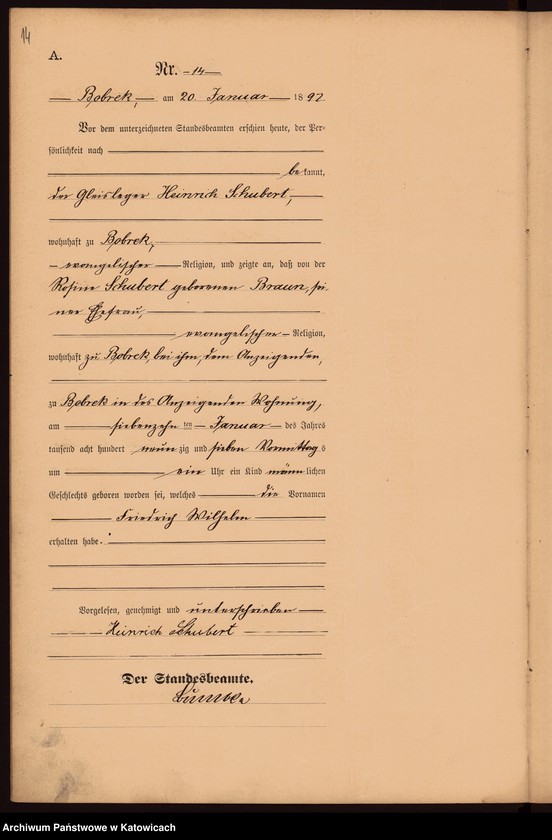 14
A.
Nr. 14
Bobrek, am 20 Januar 1897
Vor dem unterzeichneten Standesbeamten erschien heute, der Per-
sönlichkeit nach
bekannt,
der Gleisleger Heinrich Schubert,
wohnhaft zu Bobrek,
evangelischer Religion, und zeigte an, daß von der
Rosine Schubert geborenen Braun, sei-
ner Ehefrau,
evangelischer Religion,
wohnhaft zu Bobrek, bei ihm, dem Anzeigenden,
zu Bobrek in des Anzeigenden Wohnung,
am siebenzehn ten Januar des Jahres
tausend acht hundert neun zig und sieben Vormittags
um ein Uhr ein Kind männlichen
Geschlechts geboren worden sei, welches die Vornamen
Friedrich Wilhelm
erhalten habe.
Vorgelesen, genehmigt und unterschrieben
Heinrich Schubert
Der Standesbeamte.
Archiwum Państwowe w Katowicach